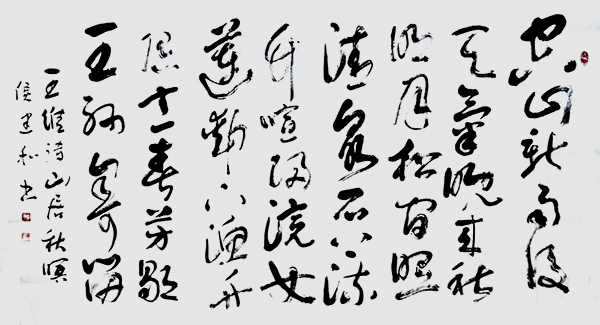 空山新雨後
天氣晚来秋
明月松間照
清泉石上流
竹喧归浣女
蓮動下漁舟
随意春芳歇
王孫自可留
王維詩山居秋暝
侯建和书